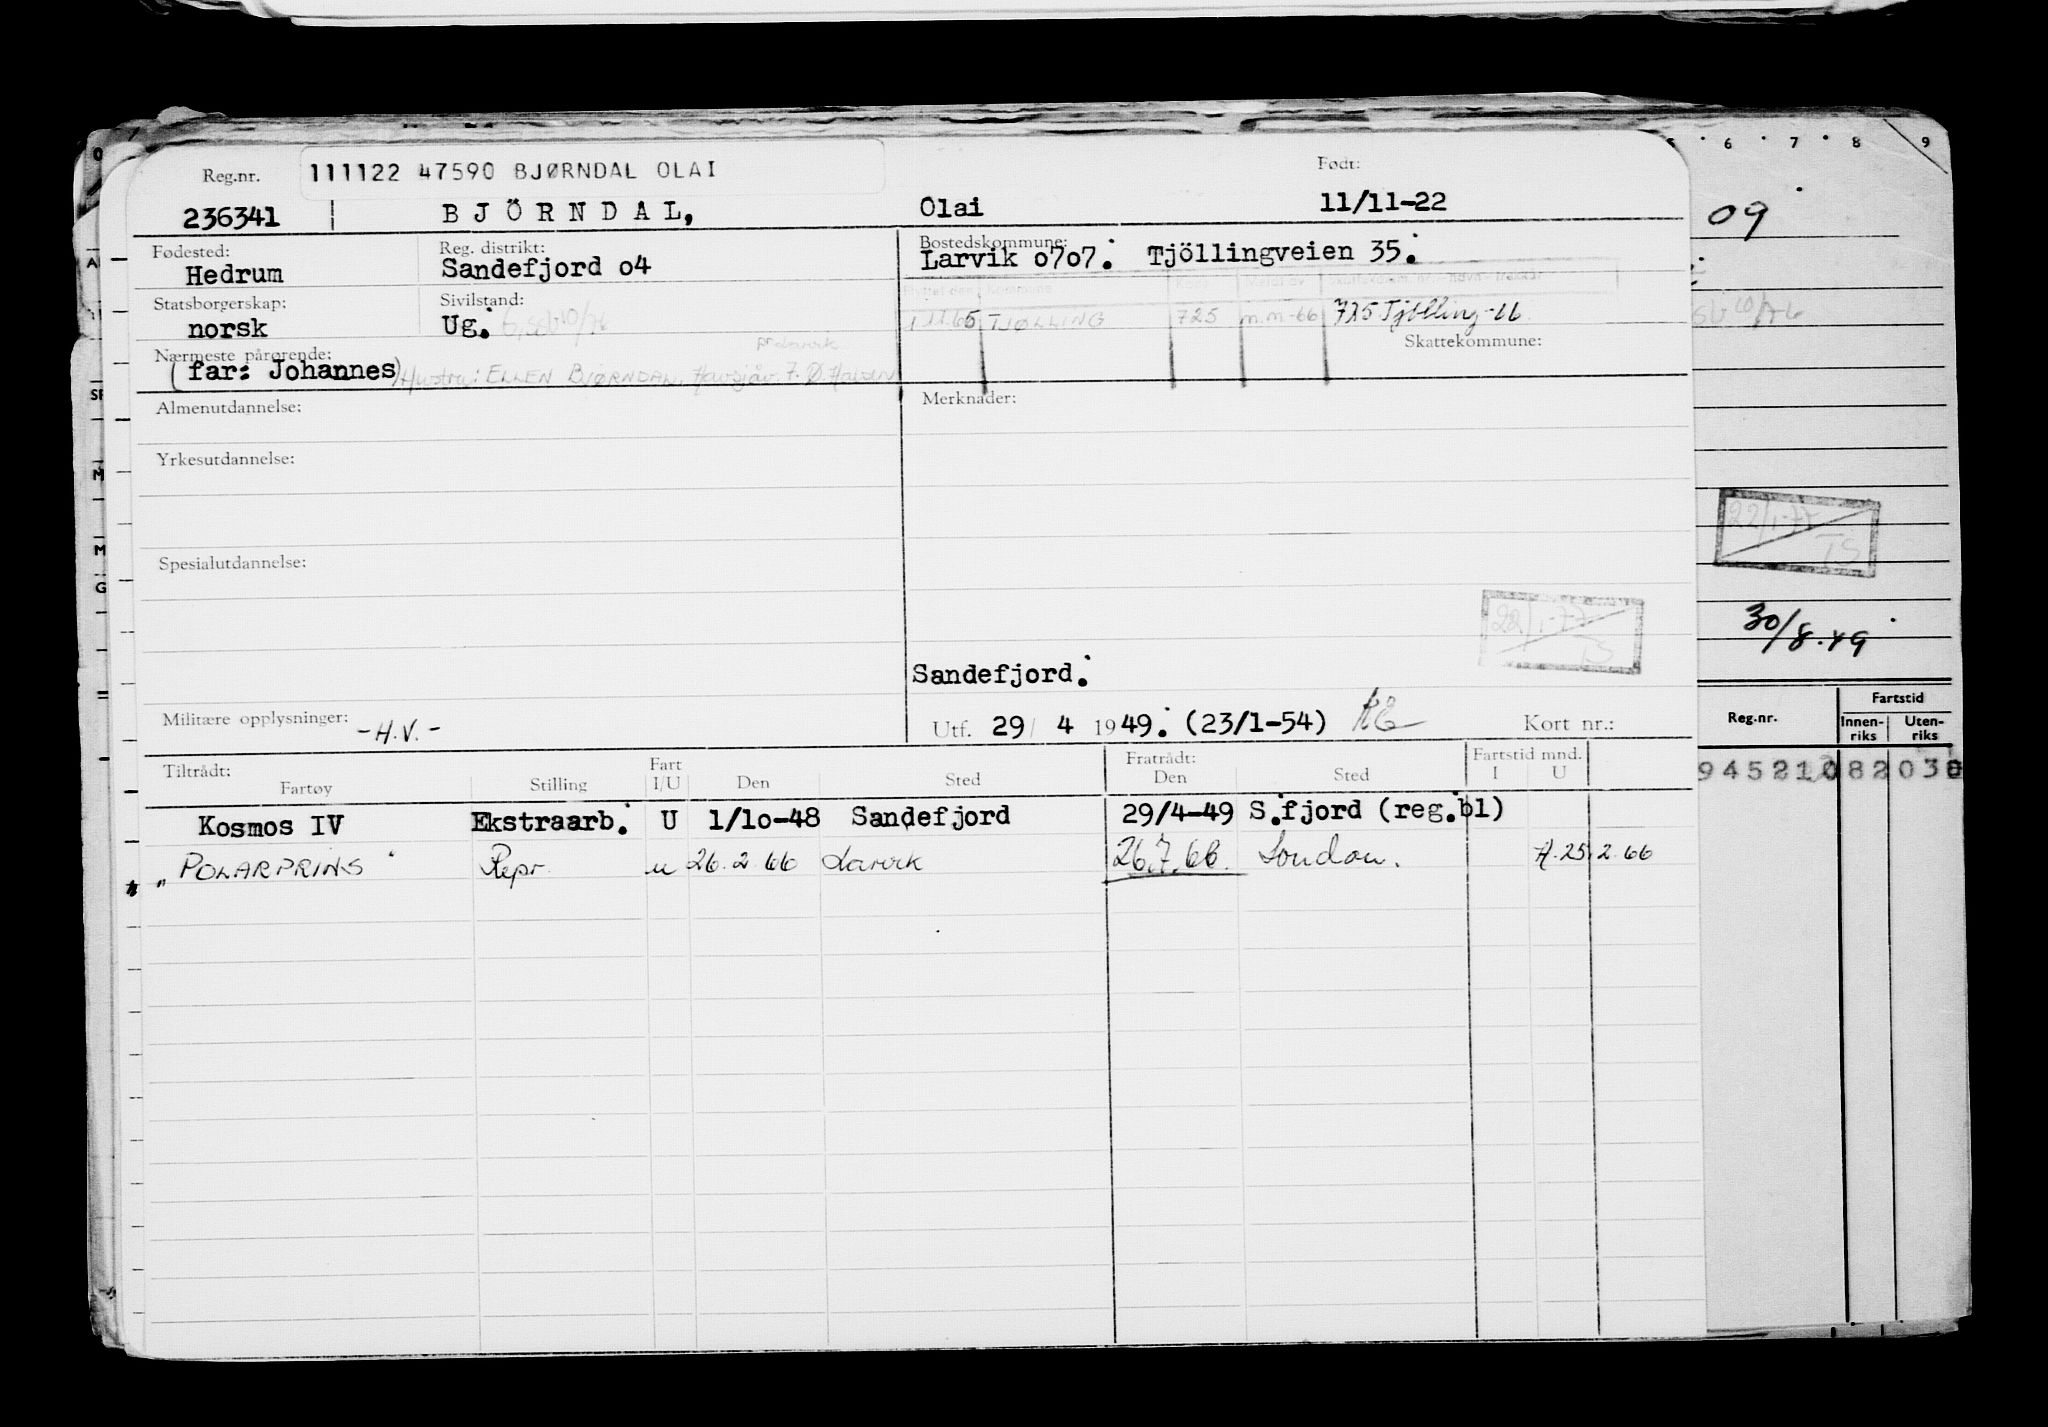 Reg.nr. 111122 47590 BJØRNDAL OLAI Født:
236341 BJÖRNDAL, Olai 11/11-22
Fødested: Reg. distrikt: Bostedskommune:
Hedrum Sandefjord o4 Larvik o7o7. Tjöllingveien 35.
Statsborgerskap: Sivilstand:
norsk Ug. TJØLLING 725 m.m-66 725 Tjølling-66
Nærmeste pårørende: Skattekommune:
(far: Johannes) Hustru: ELLEN BJØRNDAL
Almenutdannelse: Merknader:
Yrkesutdannelse:
Spesialutdannelse:
22/1-77
TS
Sandefjord.
Militære opplysninger: -H.V.- Utf. 29/ 4 1949. (23/1-54) Kort nr.:
Tiltrådt: Fart Fratrådt: Fartstid mnd.
Fartøy Stilling I/U Den Sted Den Sted I U
Kosmos IV Ekstraarb. U 1/1o-48 Sandefjord 29/4-49 S.fjord (reg.bl)
"POLARPRINS" Repr. u 26.2 66 Larvik 26.7.66. London. A.25.2.66
5 6 7 8 9
09
22/1-77
TS
30/8.49
Reg.nr. Fartstid
Innen-riks Uten-riks
A
M
M
G